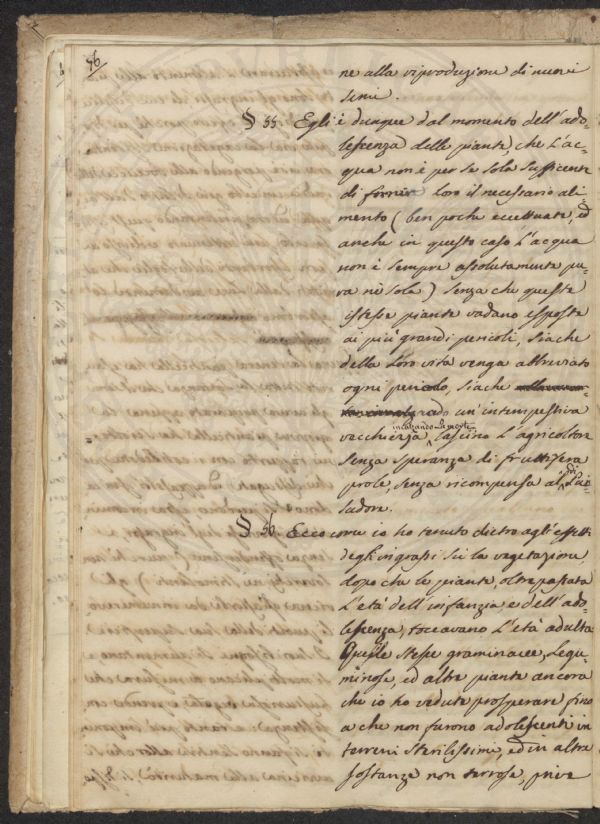 76
ne alla riproduzione di nuovi
semi.
§ 55 Egli è dunque dal momento dell'ado-
lescenza delle piante, che l'ac-
qua non è per se sola sufficente
di fornir loro il necessario ali-
mento (ben poche eccettuate, ed
anche in questo caso l'acqua
non è sempre assolutamente pu-
ra nè sola) senza che queste
istesse piante vadano esposte
ai più grandi pericoli, siache
della loro vita venga abbreviato
ogni periodo, siache
grado un'intempestiva
incalzando la morte
vecchiezza, lascino l'agricoltore
senza speranza di fruttifera
prole, senza ricompensa al di lui
sudore.
§ 56 Ecco come io ho tenuto dietro agli effetti
degli ingrassi su la vegetazione
dopo che le piante, oltrepassata
l'età dell'infanzia, e dell'ado-
lescenza, toccavano l'età adulta
Quelle stesse graminacee, legu-
minose, ed altre piante ancora
che io ho vedute prosperare fino
a che non furono adolescenti in
terreni sterilissimi, ed in altre
sostanze non terrose, prive